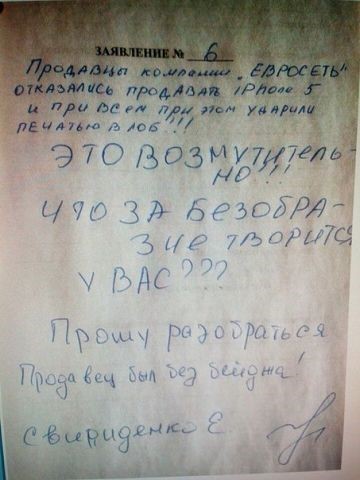 ЗАЯВЛЕНИЕ № 6
Продавцы компании "ЕВРОСЕТЬ"
отказались продавать iPhone 5
и при всем при этом ударили
печатью в лоб!!!
ЭТО ВОЗМУТИТЕЛЬ-
НО!!!
ЧТО ЗА БЕЗОБРА-
ЗИЕ ТВОРИТСЯ
У ВАС???
Прошу разобраться
Продавец был без бейджа!
Свириденко Е.